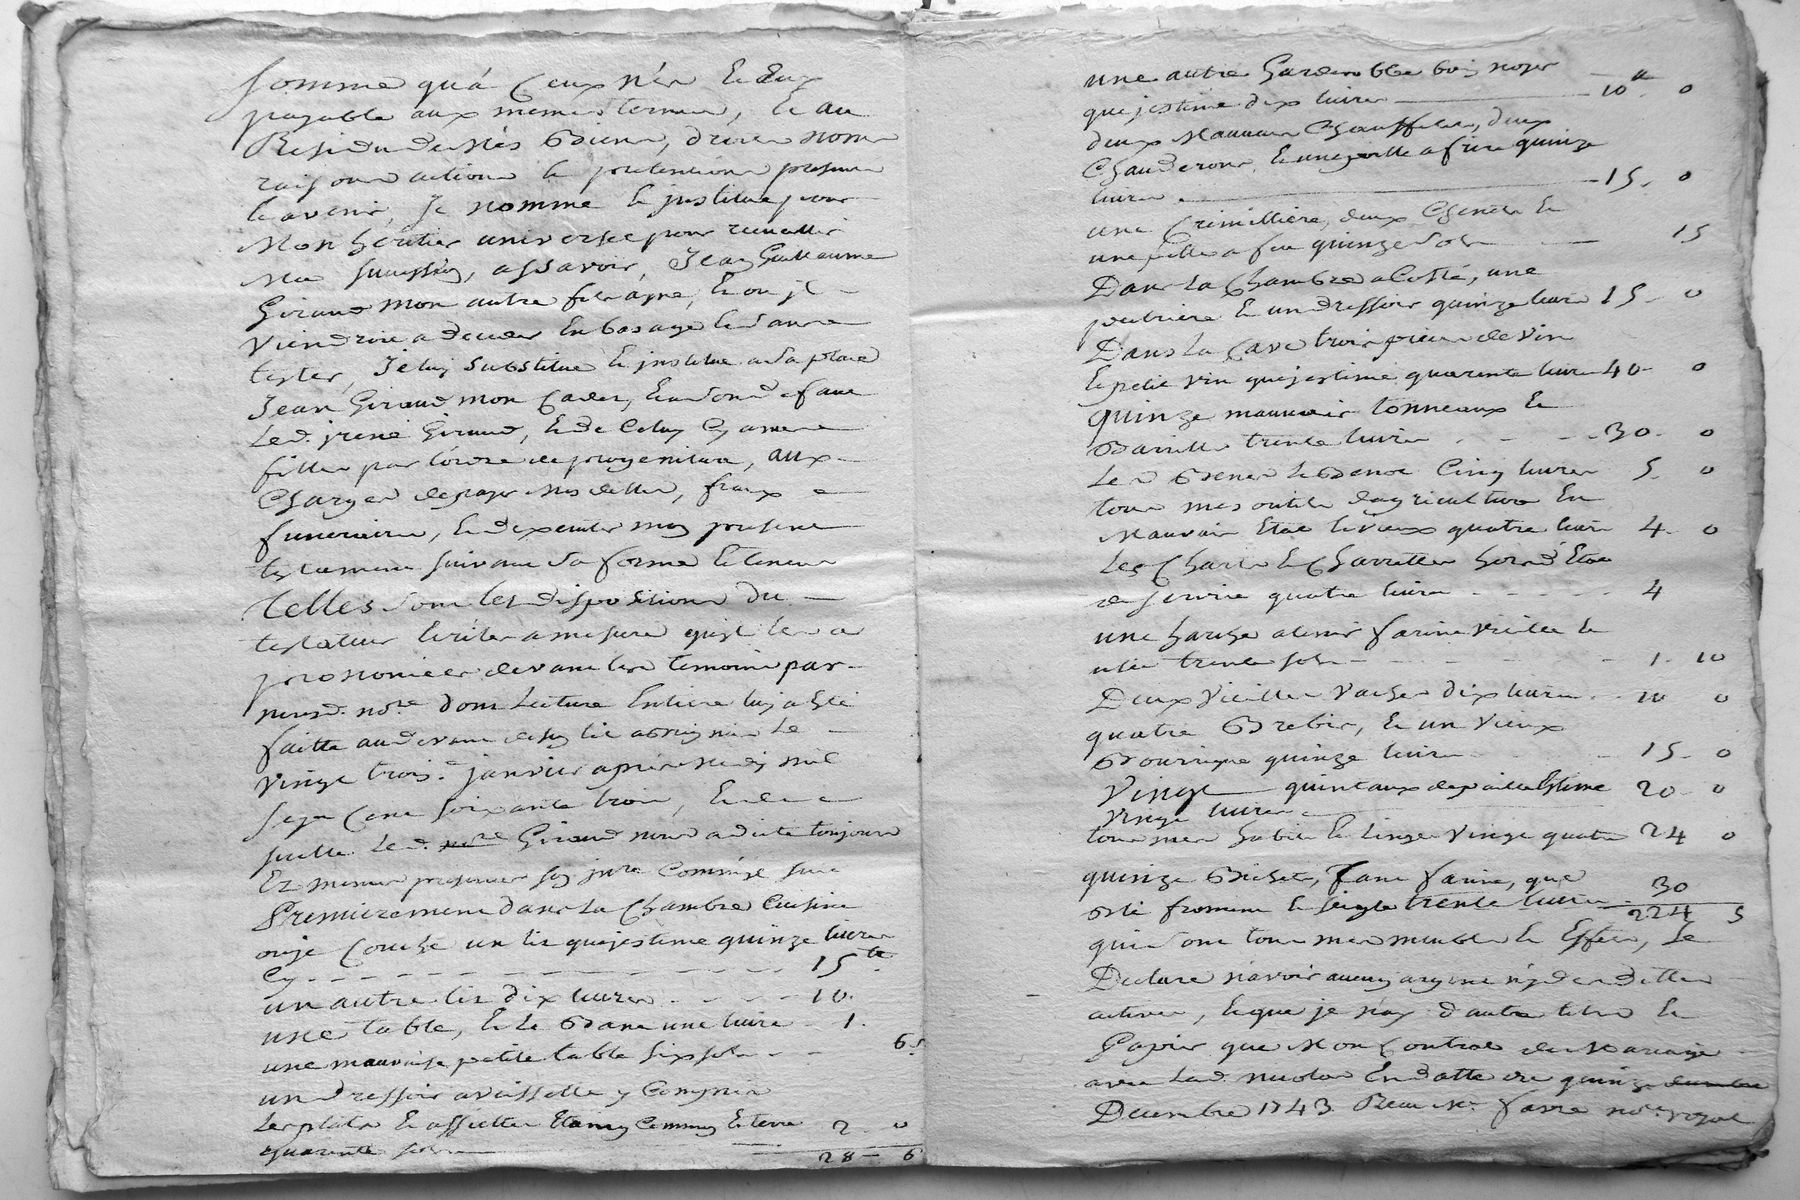 Somme qu'à Ceux n'ée Et Eux
payable aux memes termes, Et au
Residu de Mes Biens, droits noms
raisons actions Et pretentions presents
Et avenir, Je nomme Et jnstitue pour
Mon heritier universel pour recueillir
Ma succession, assavoir, Jean Guilleaume
Giraud mon autre fils ayné, Et ou jl
Viendroit a deceder En bas age Et sans
tester, Je luy substitue Et jnstitue a sa place
Jean Giraud mon Cadet, Et a son deffaut
Led. jrené Giraud, Et de Celuy Cy a mes
filles par l'ordre de progeniture, aux
Charges de payer Mes dettes, fraix
funeraires, Et d'executer mon present
testament suivant sa forme Et teneur
telles sont les dispositions du
testateur Ecrites a mesure qu'jl les a
prononcées devant les temoins par
nousd. nore dont Lecture Entiere luy a Esté
faitte au devant de son lit
Vingt trois.e janvier apres midy mil
sept Cent soixante trois, Et de
suitte Led. Giraud nous a dicté toujours
Ez memes presences son jnre Comm'jl suit
Premierement dans La Chambre Cuisine
ou je Couche un lit que j'estime quinze livres
Cy 15 lt
un autre lit dix livres 10.
une table, Et Le Banc une livre 1.
une mauvaise petite table six sols 6 s
un dressoir a vaisselle y Compris
Les plats Et assiettes Etaing Commun Et terre
quarante sols 2 0
28 6
une autre Garderobbe bois noyer
que j'estime dix livres 10 0
deux Mauvais Chauffelits, deux
Chauderons, Et une poille a frire quinze
livres 15 0
une Crimillière, deux Chenets Et
une pelle a feu quinze sols 15
Dans La Chambre a Costé, une
petriere Et un dressoir quinze livres 15 0
Dans La Cave trois pieces de vin
Et petit vin que j'estime quarante livres 40 0
quinze mauvais tonneaux Et
Barrille trente livres 30 0
Cinq livres 5 0
tous mes outils d'agriculture En
Mauvais Etat Et vieux quatre livres 4 0
Les Chars Et Charrettes hors d'Etat
de servir quatre livres 4
une harche a tenir farine vieille Et
usée trente sols 1 10
Deux Vieilles Vaches dix livres 10 0
quatre Brebis, Et un Vieux
Bourrique quinze livres 15 0
Vingt quintaux de paille Estimé
vingt livres 20 0
tous mes habits Et Linge vingt quatre 24 0
quinze Bichets, Tant farine, que
Blé froment Et seigle trente livres 30
224 5
qui sont tous mes meubles Et Effets, Je
Declare n'avoir aucun argent n'y de dettes
actives, Et que je n'ay d'autre titre Et
Papier que Mon Contrat de Mariage
avec Lad. Nicolas En datte du quinze
Decembre 1743 Receu Me favre nore royal